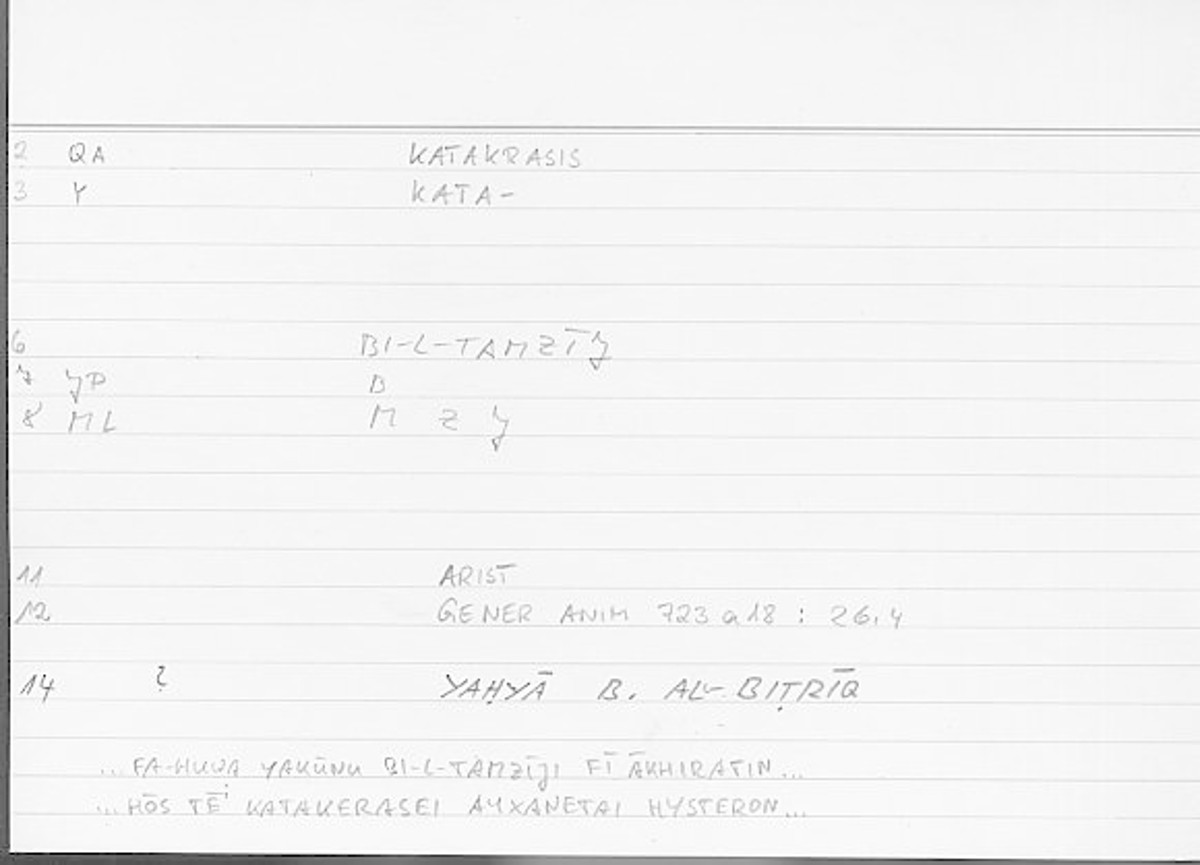 2 QA KATAKRASIS
3 Y KATA-
6 BI-L-TAMZĪJ
7 JP B
8 ML M Z J
11 ARIST
12 GENER ANIM 723 a 18 : 26,4
14 ? YAḤYĀ B. AL-BIṬRĪQ
... FA-HUWA YAKŪNU BI-L-TAMZĪJI FĪ ĀKHIRATIN ...
... HŌS TĒⁱ KATAKERASEI AYXANETAI HYSTERON ...